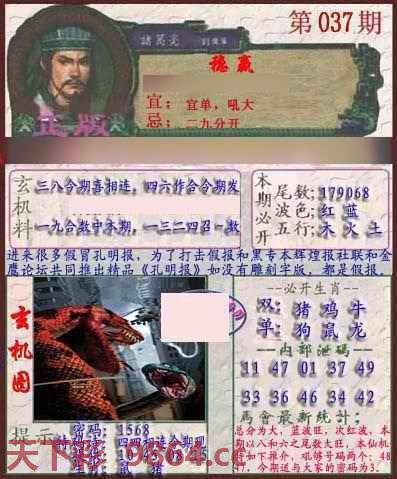 第037期
諸葛亮
稳赢
宜：宜单，吼大
忌：二九分开
正版
玄机料
三八合期喜相连，四六作合今期发
一九合数中本期，一三二四召一数
本期必开
尾数;179068
波色;红 蓝
五行;木 火 土
进来很多假冒孔明报，为了打击假报和黑专本辉煌报社联和金
鹰论坛共同推出精品《孔明报》如没有雕刻字版，都是假报。
玄机图
必开生肖
双: 猪 鸡 牛
单: 狗 鼠 龙
内部泄码
11 47 01 37 49
33 36 46 34 42
馬會最新統計:
总分为大，波蓝旺，次红波，本
期以八和六之尾数大旺，本仙机
将如下推介，吼够号码两个：48
47，今期道与大家的密码为3．
提示
密码: 1568
四四相连合期现
天下彩 9864.cc
猪